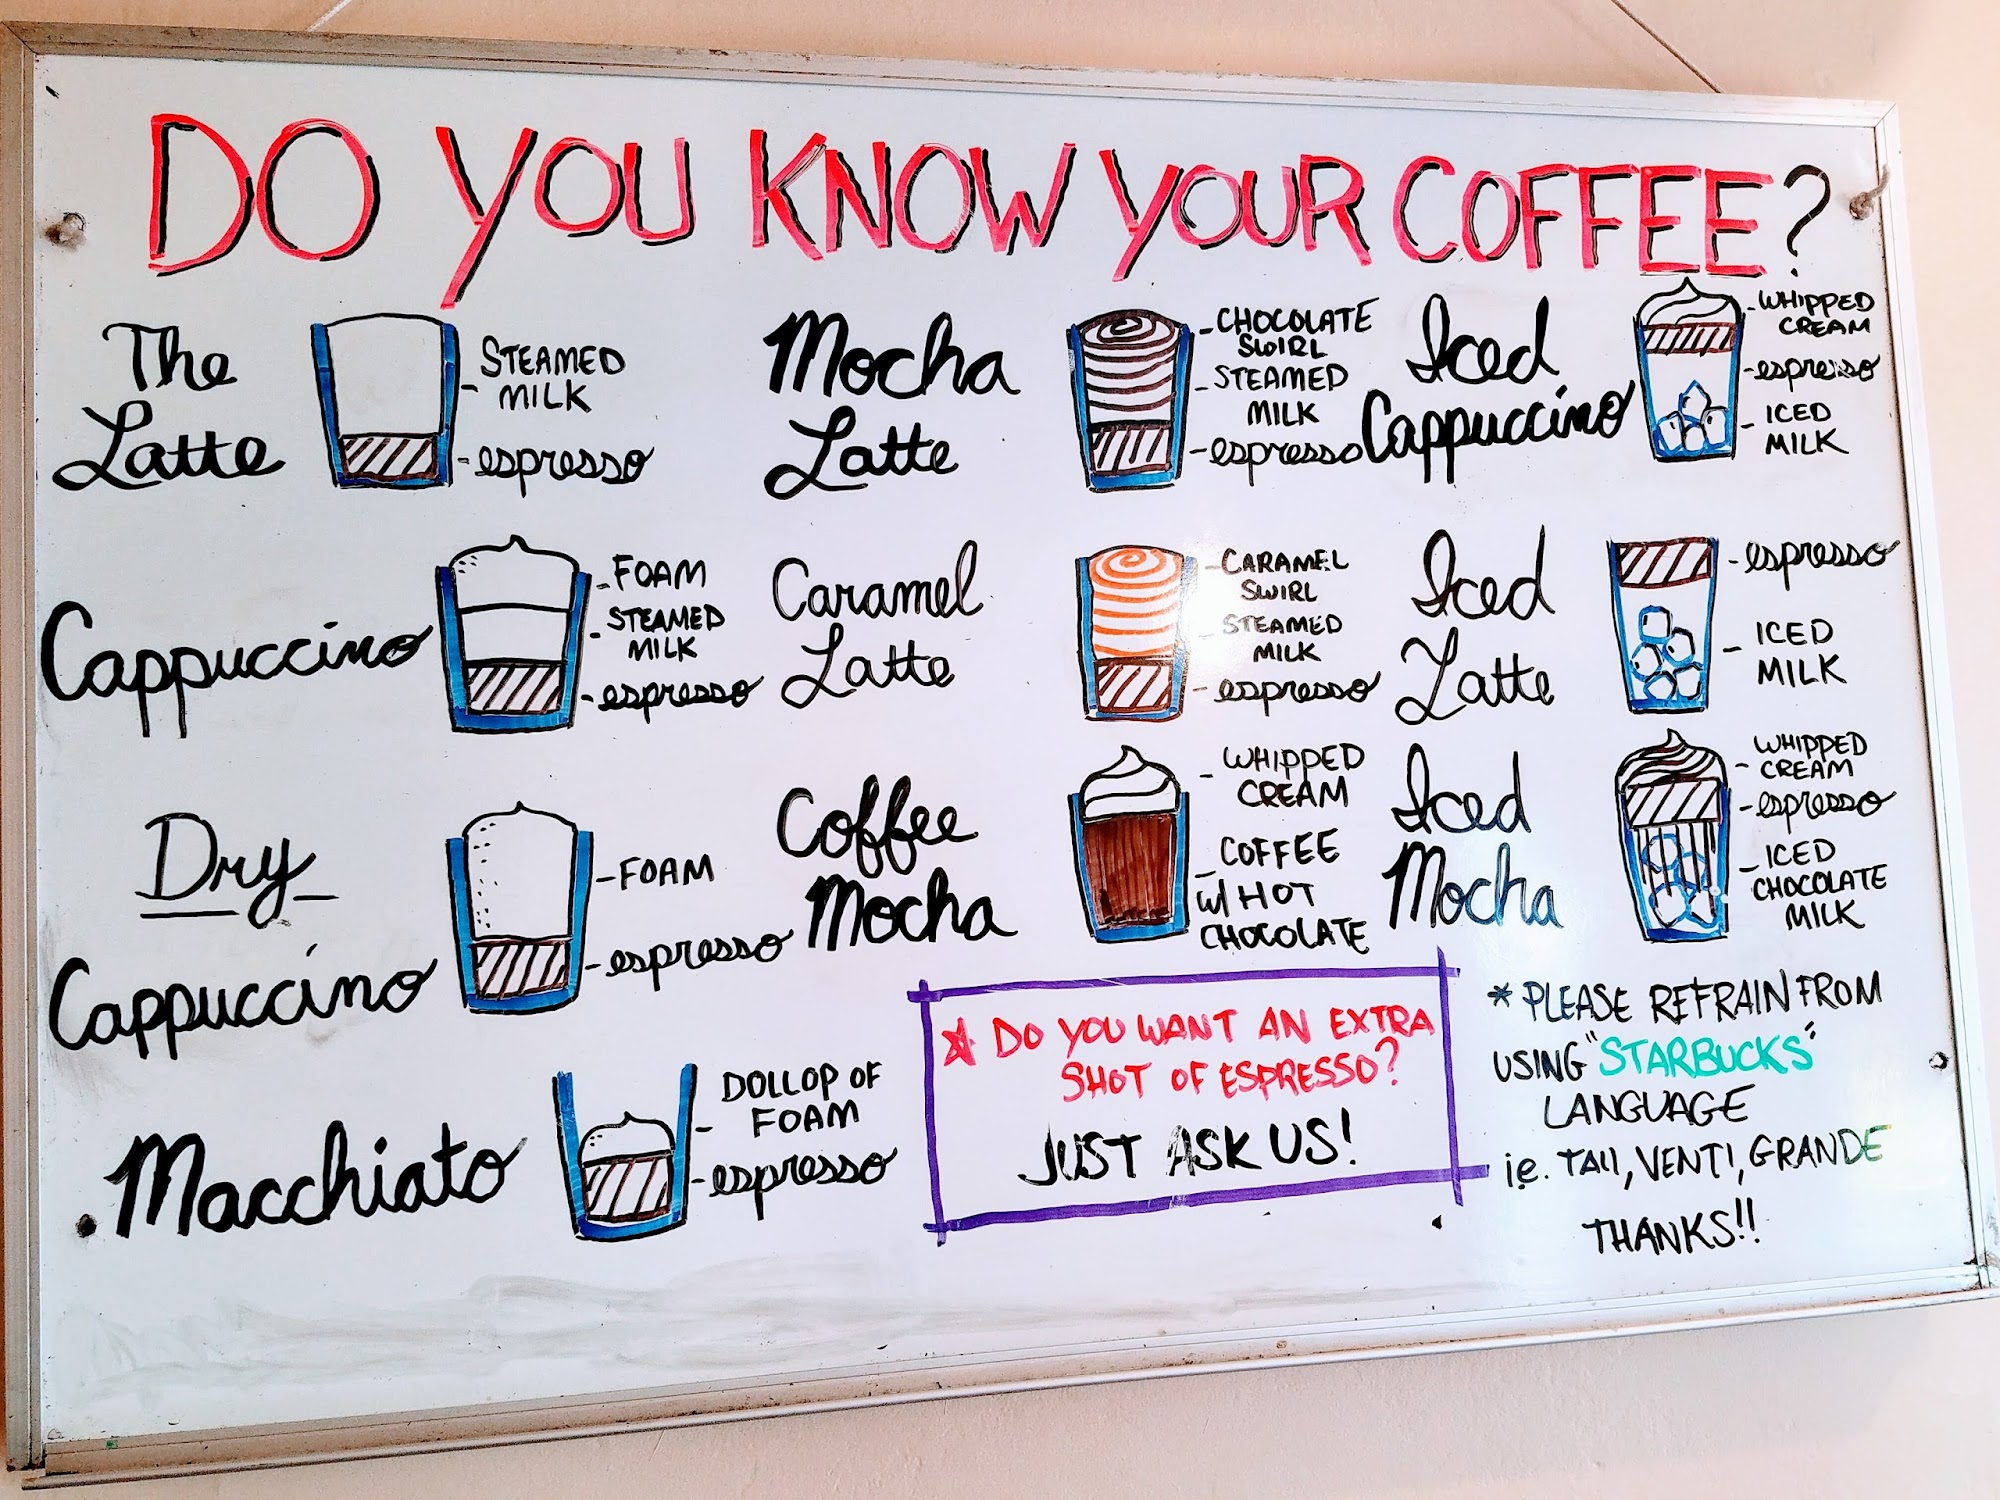 DO YOU KNOW YOUR COFFEE?
The
Latte
STEAMED
MILK
-espresso
Cappuccino
-FOAM
STEAMED
MILK
-espresso
Dry
Cappuccino
-FOAM
-espresso
Macchiato
DOLLOP OF
FOAM
-espresso
Mocha
Latte
-CHOCOLATE
SWIRL
-STEAMED
MILK
-espresso
Caramel
Latte
-CARAMEL
SWIRL
-STEAMED
MILK
-espresso
Coffee
Mocha
-WHIPPED
CREAM
-COFFEE
w/ HOT
CHOCOLATE
Iced
Cappuccino
-WHIPPED
CREAM
-espresso
-ICED
MILK
Iced
Latte
-espresso
-ICED
MILK
Iced
Mocha
-WHIPPED
CREAM
-espresso
-ICED
CHOCOLATE
MILK
* DO YOU WANT AN EXTRA
SHOT OF ESPRESSO?
JUST ASK US!
* PLEASE REFRAIN FROM
USING "STARBUCKS"
LANGUAGE
i.e. TAll, VENTI, GRANDE
THANKS!!